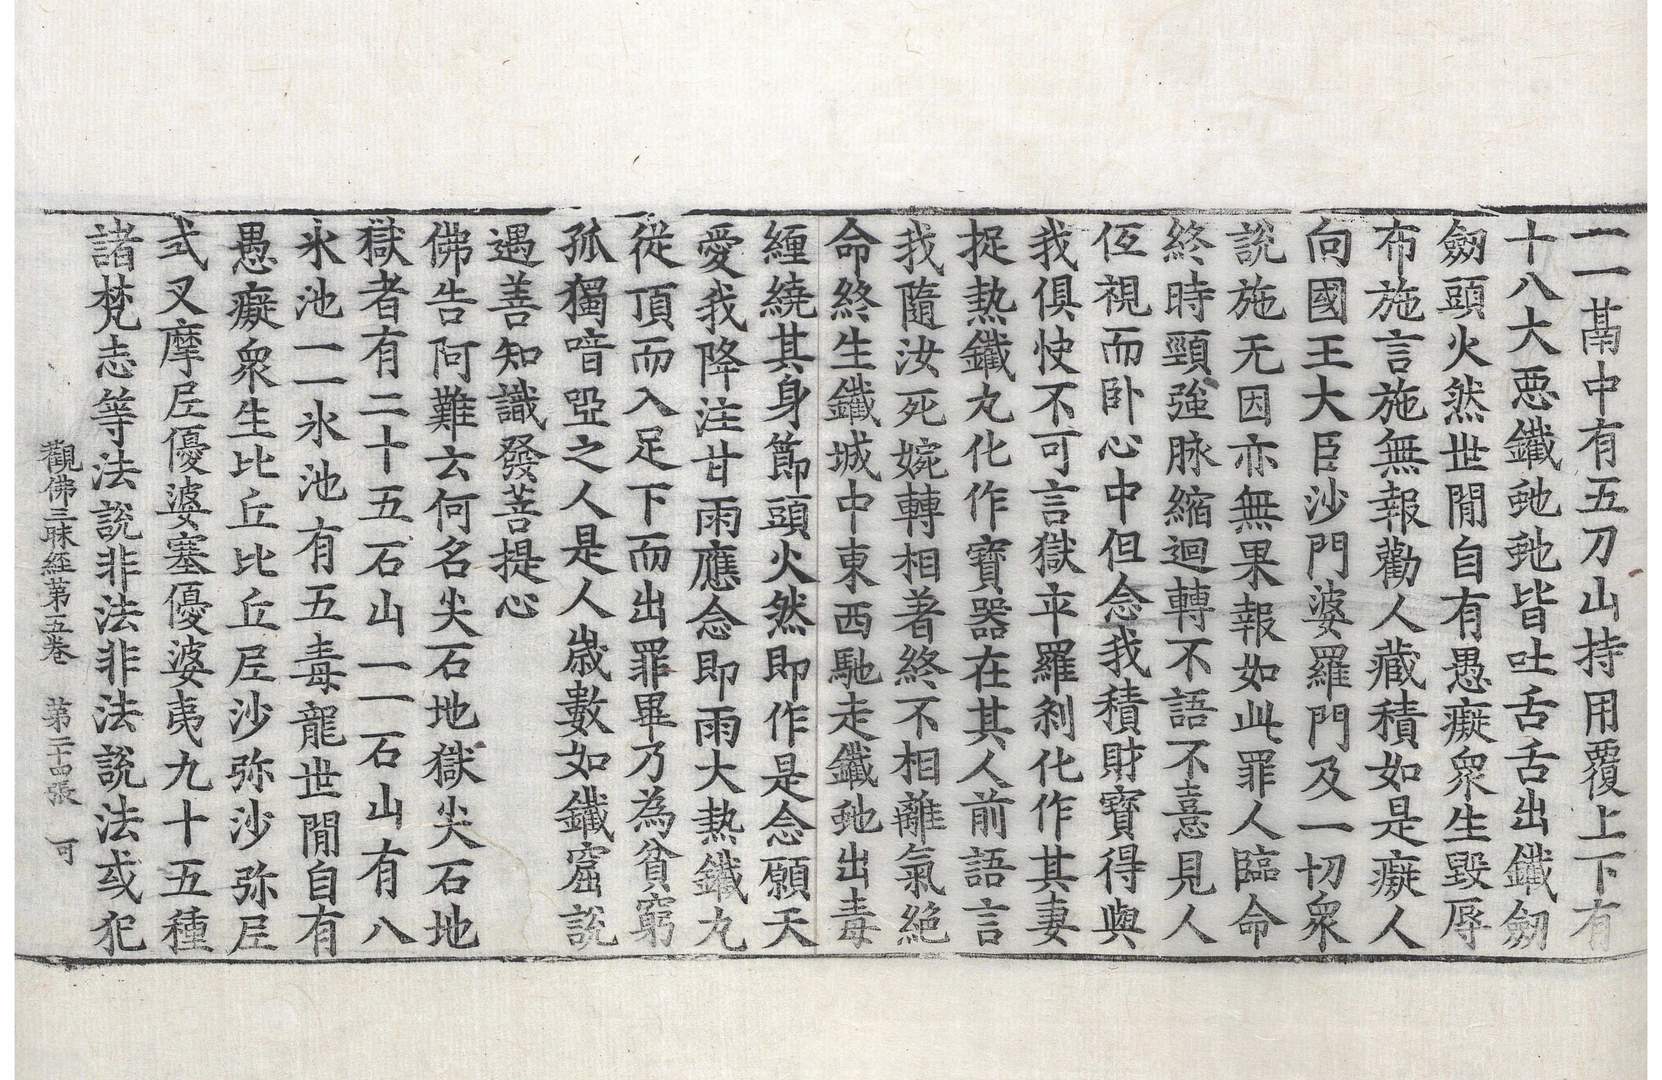 一一鬲中有五刀山持用覆上下有
十八大悪鐵虵虵皆吐舌舌出鐵劒
劒頭火然世閒自有愚癡衆生毀辱
布施言施無報勸人藏積如是癡人
向國王大臣沙門婆羅門及一切衆
說施无因亦無果報如此罪人臨命
終時頸強脉縮迴轉不語不憙見人
伍視而卧心中但念我積財寶得與
我俱快不可言獄卒羅刹化作其妻
捉熱鐵丸化作寶器在其人前語言
我隨汝死婉轉相著終不相離氣絕
命終生鐵城中東西馳走鐵虵出毒
纏繞其身節頭火然即作是念願天
愛我降注甘雨應念即雨大熱鐵丸
從頂而入足下而出罪畢乃為貧窮
孤獨喑啞之人是人歲數如鐵窟說
遇善知識發菩提心
佛告阿難云何名尖石地獄尖石地
獄者有二十五石山一一石山有八
氷池一一氷池有五毒龍世閒自有
愚癡衆生比丘比丘尼沙弥沙弥尼
式叉摩尼優婆塞優婆夷九十五種
諸梵志等法說非法非法說法或犯
觀佛三昧経第五卷 第二十四張 可